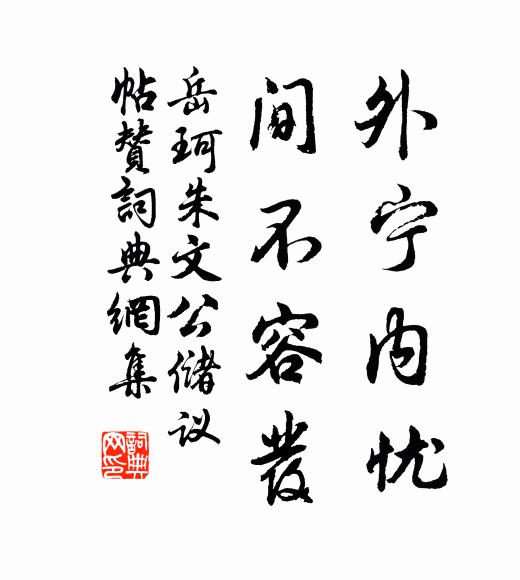 外宁内忧
间不容發
岳珂朱文公储议
帖賛詞典網集
詞典网印